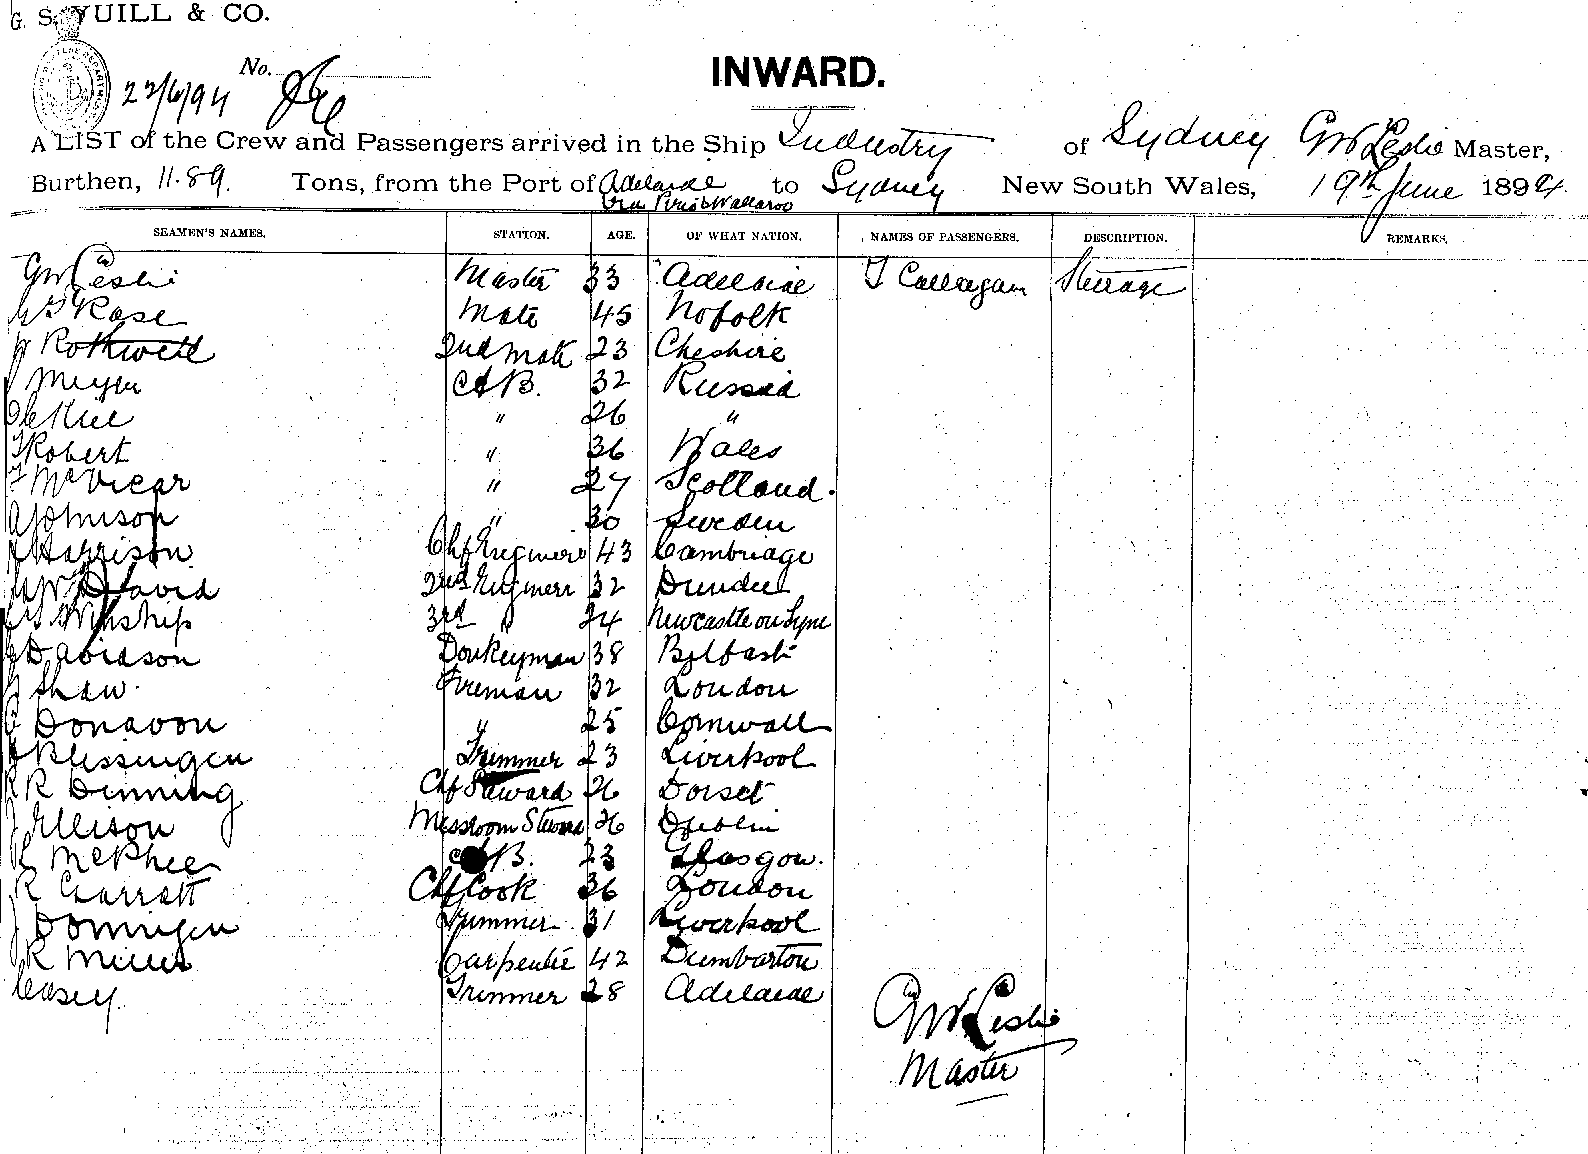 G. S. YUILL & CO.
22/6/94 No.
INWARD.
A LIST of the Crew and Passengers arrived in the Ship Industry of Sydney GW Leslie Master,
Burthen, 1189. Tons, from the Port of Adelaide to Sydney New South Wales, 19th June 1894.
Via Pirie & Wallaroo
SEAMEN'S NAMES. STATION. AGE. OF WHAT NATION. NAMES OF PASSENGERS. DESCRIPTION. REMARKS.
GW Leslie Master 33 Adelaide T Callagan Steerage
Rase Mate 45 Nofolk
Rothwell 2nd Mate 23 Cheshire
Meyer AB. 32 Russia
" 26 "
Robert " 36 Wales
McVicar " 27 Scotland.
Johnson " 30 Sweden
Harrison Chf Engineer 43 Cambriage
David 2nd Engineer 32 Dundee
Winship 3rd " 24 Newcastle on Tyne
Davidson Donkeyman 38 Belfast
Shaw. Fireman 32 London
Donavon " 25 Cornwall
Blessingen Trimmer 23 Liverpool
R Dinning Chf Steward 26 Dorset
Ellison Messroom Steward 26 Dublin
McPhee AB. 23 Glasgow.
R Garratt Chf Cook 36 London
J Domigen Trimmer 31 Liverpool
R Carpenter 42 Dumbarton
Casey. Trimmer 28 Adelaide
GW Leslie
Master